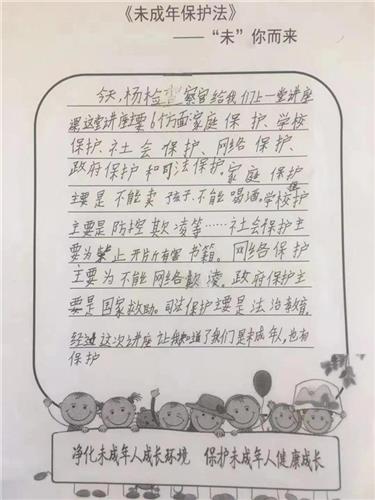 《未成年保护法》
——“未”你而来
今天,杨检察官给我们上一堂讲座
课,这堂讲座主要6个方面:家庭保护、学校
保护、社会保护、网络保护、
政府保护和司法保护。家庭保护
主要是不能卖孩子、不能喝酒。学校保护
主要是防控欺凌等……社会保护主
要为禁止开片所有害书籍。网络保护
主要为不能网络欺凌。政府保护主
要是国家救助。司法保护主要是法治教育。
经过这次讲座让我知道了我们是未成年人,也有
保护
净化未成年人成长环境 保护未成年人健康成长